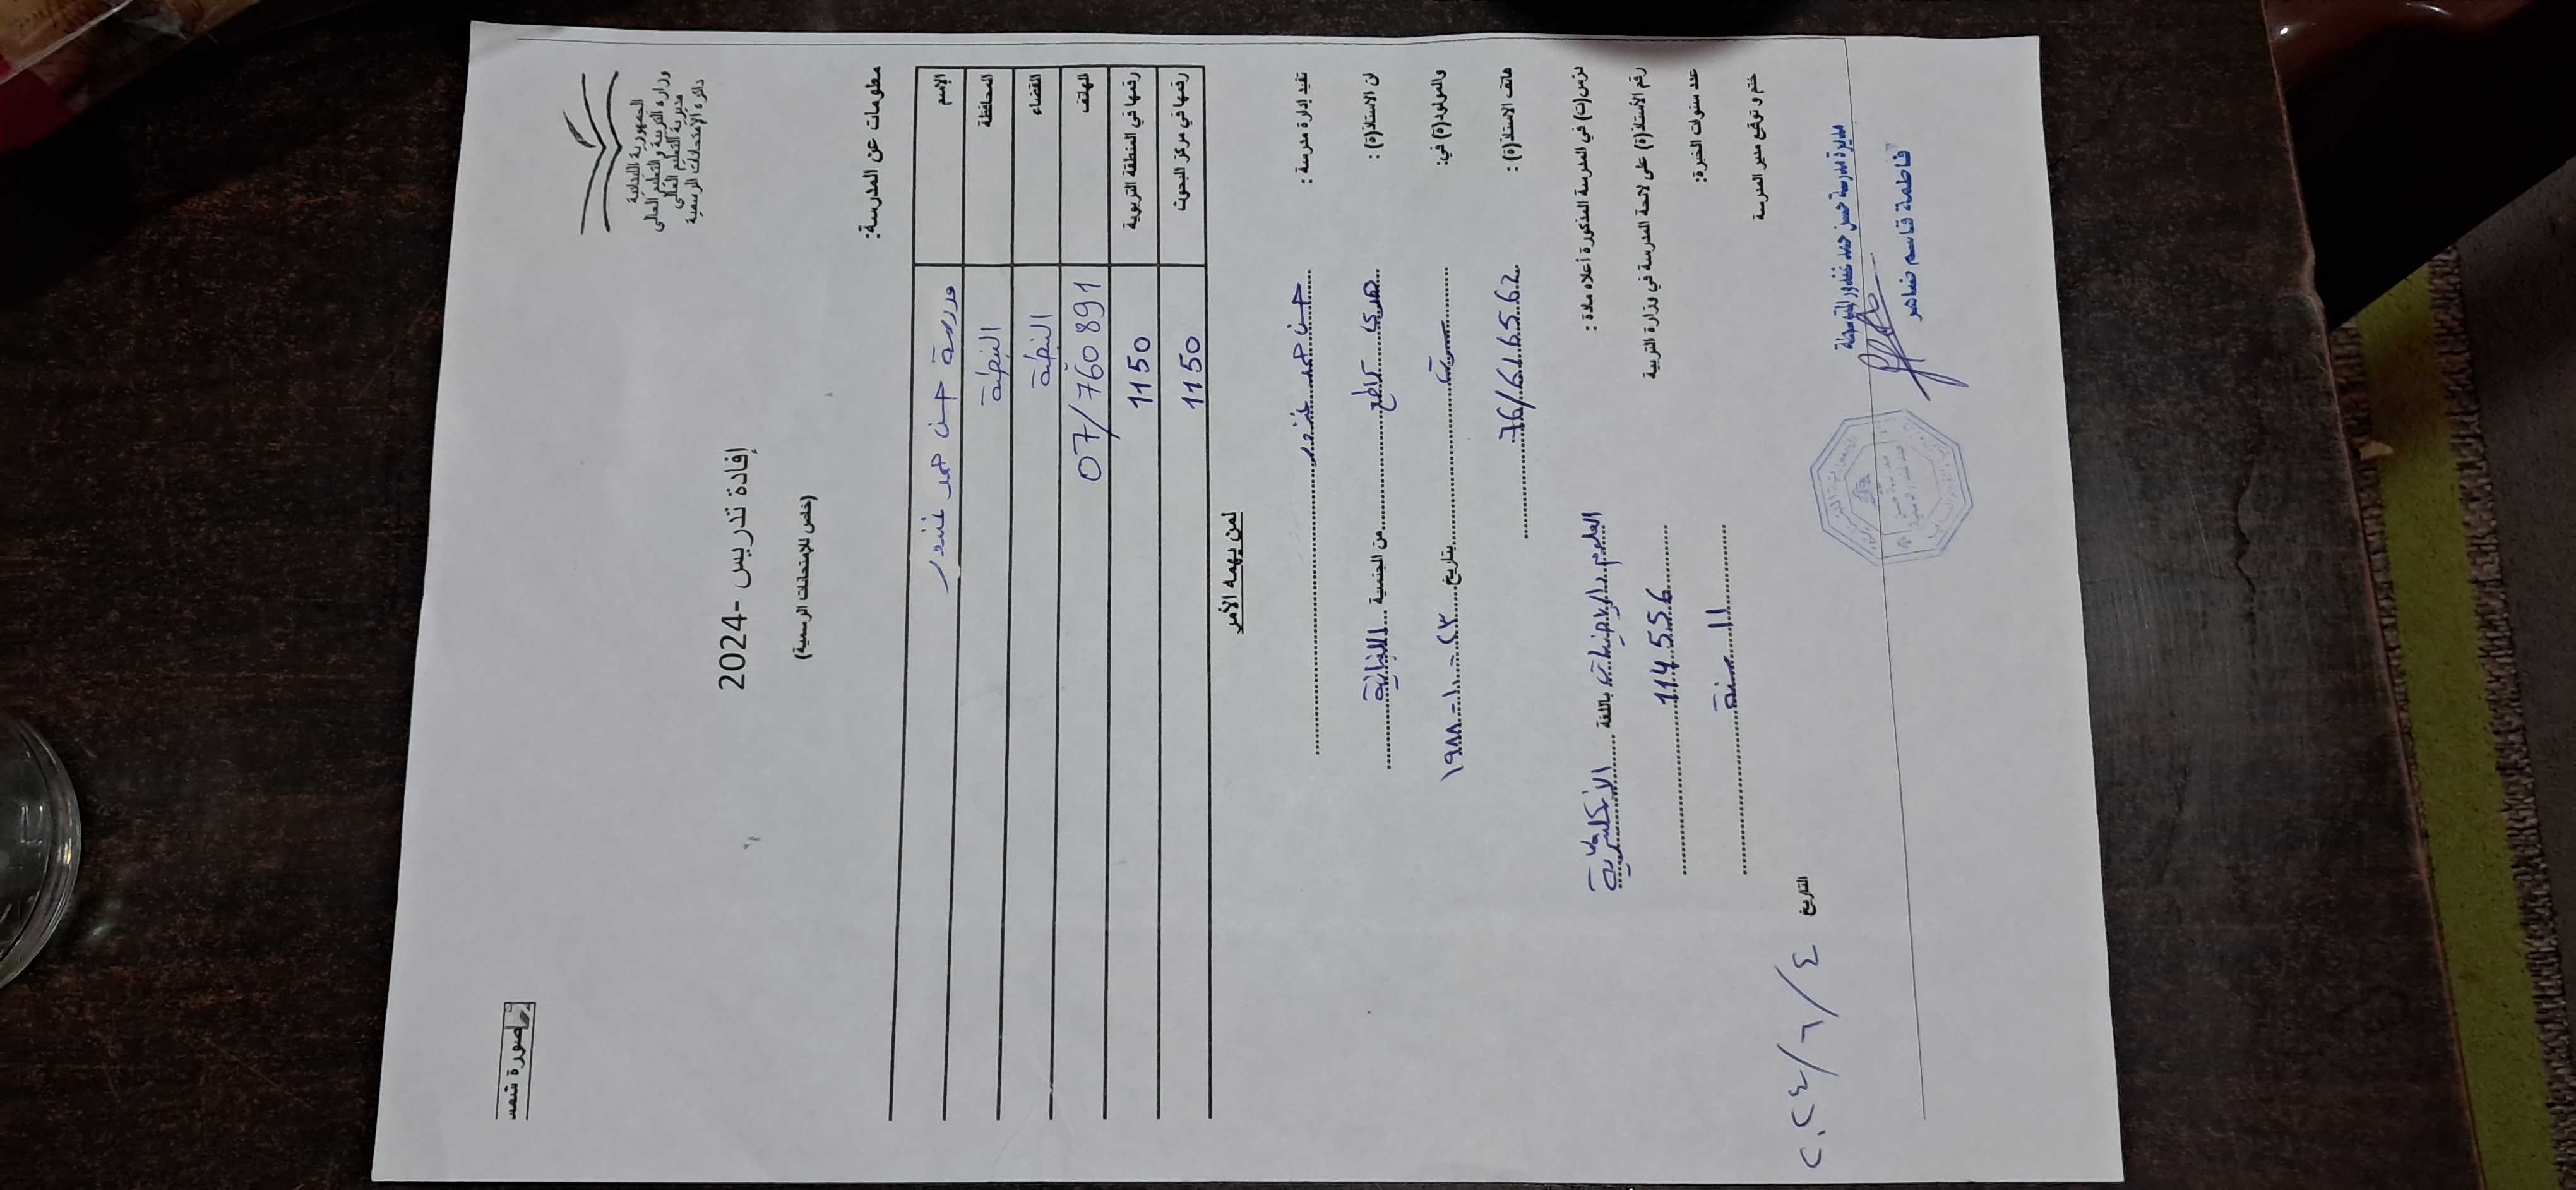 الجمهورية اللبنانية
وزارة التربية والتعليم العالي
مديرية التعليم العالي
دائرة الإمتحانات الرسمية
صورة شمسـ
إفادة تدريس -2024
(خاص للإمتحانات الرسمية)
معلومات عن المدرسة:
الإسم مدرسة حسن حمد غندور
المحافظة النبطية
القضاء النبطية
الهاتف 07/760891
رقمها في المنطقة التربوية 1150
رقمها في مركز البحوث 1150
لمن يهمه الأمر
تفيد إدارة مدرسة : حسن حمد غندور
ان الاستاذ(ة) : هدى من الجنسية اللبنانية
والمولود(ة) في: بتاريخ ٢٣-١٠-١٩٨٨
هاتف الاستاذ(ة) : 76/616562
يدرس(ت) في المدرسة المذكورة أعلاه مادة : العلوم والرياضيات باللغة الانكليزية
رقم الأستاذ(ة) على لائحة المدرسة في وزارة التربية 114556
عدد سنوات الخبرة: ١١ سنة
ختم و توقيع مدير المدرسة
التاريخ ٤/٦/٢٠٢٤
مديرة مدرسة حسن حمد غندور المتوسطة
فاطمة قاسم ضاهر